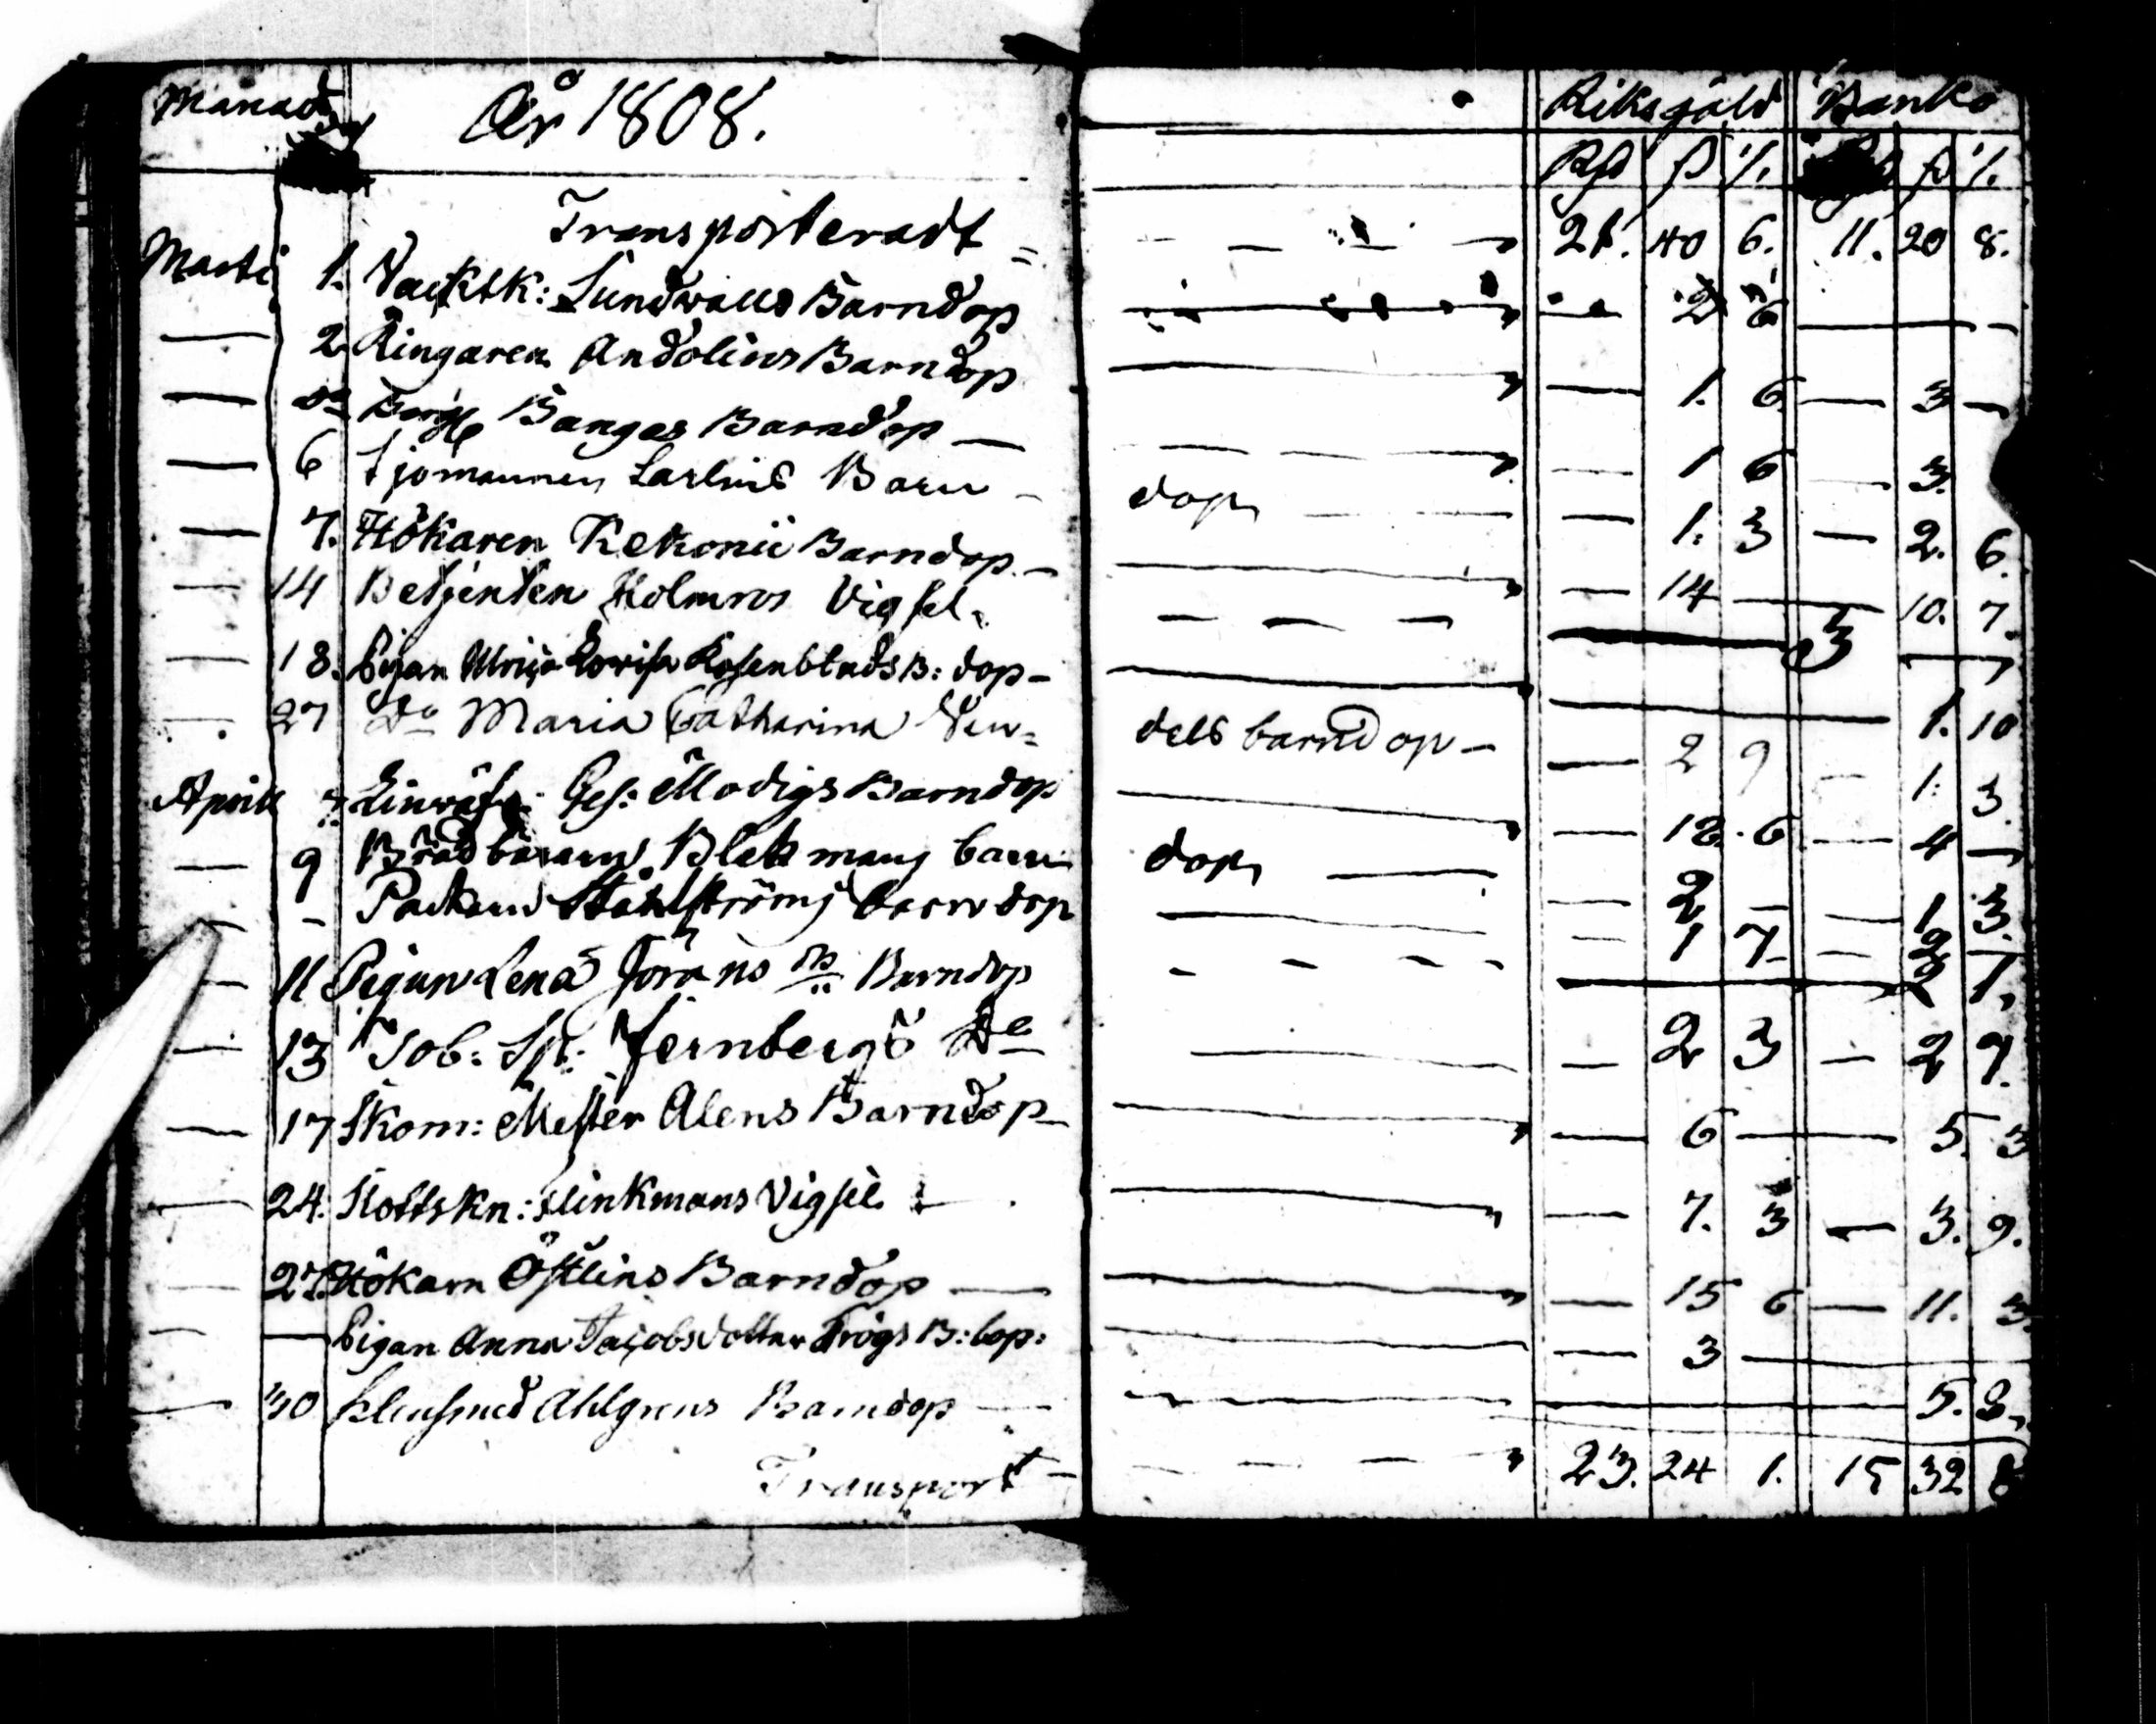 Månad År 1808. Riksgäld Banko
Rd ß /. ß /.
Transporteradt = 21. 40 6. 11. 20 8.
Marti 1. Vacktk: Lundwalls Barndop — 2 6 —
— 2 Ringaren Andolins Barndop — 1. 6 — 3 —
— do Banges Barndop — — 1 6 — 3.
— 6 Sjomannen Larlins Barn - dop — 1. 3 — 2. 6.
— 7. Hökaren Rekonii Barndop — — 14 — 10. 7.
— 14 Betjenten Holmros Vigsel. — 3 —
— 18. Pigan Ulrica Lovisa Rosenblads B: dop - — 1. 10
— 27 Do Maria Catharina Wen= dels barndop - — 2 9 — 1. 3.
Aprill 7. Linwäf: Ges: Modigs Barndop — 12. 6 — 4 —
— 9 Brädbäraren Blekmans barn dop — — 2 — — 1 3.
— - Packaren Stählströms barndop — 1 7 — 2 —
— 11 Pigan Lena Jörans Dr Barndop — 2 1.
— 13 Tob: Sp: Jernbergs Do — 2 3 — 2 7.
— 17 Skom: Mester Alens Barndop — 6 — 5. 3
— 24. Slottskn: Flinkmans Vigsel — 7. 3 — 3. 9.
— 27. Hökarn Östlins Barndop — — 15 6 — 11. 3.
— — Pigan Anna Jacobsdotter Frögs B:dop: — 3 —
— 30 Klensmed Ahlgrens Barndop — 5. 8.
Transport — 23. 24 1. 15 32 8